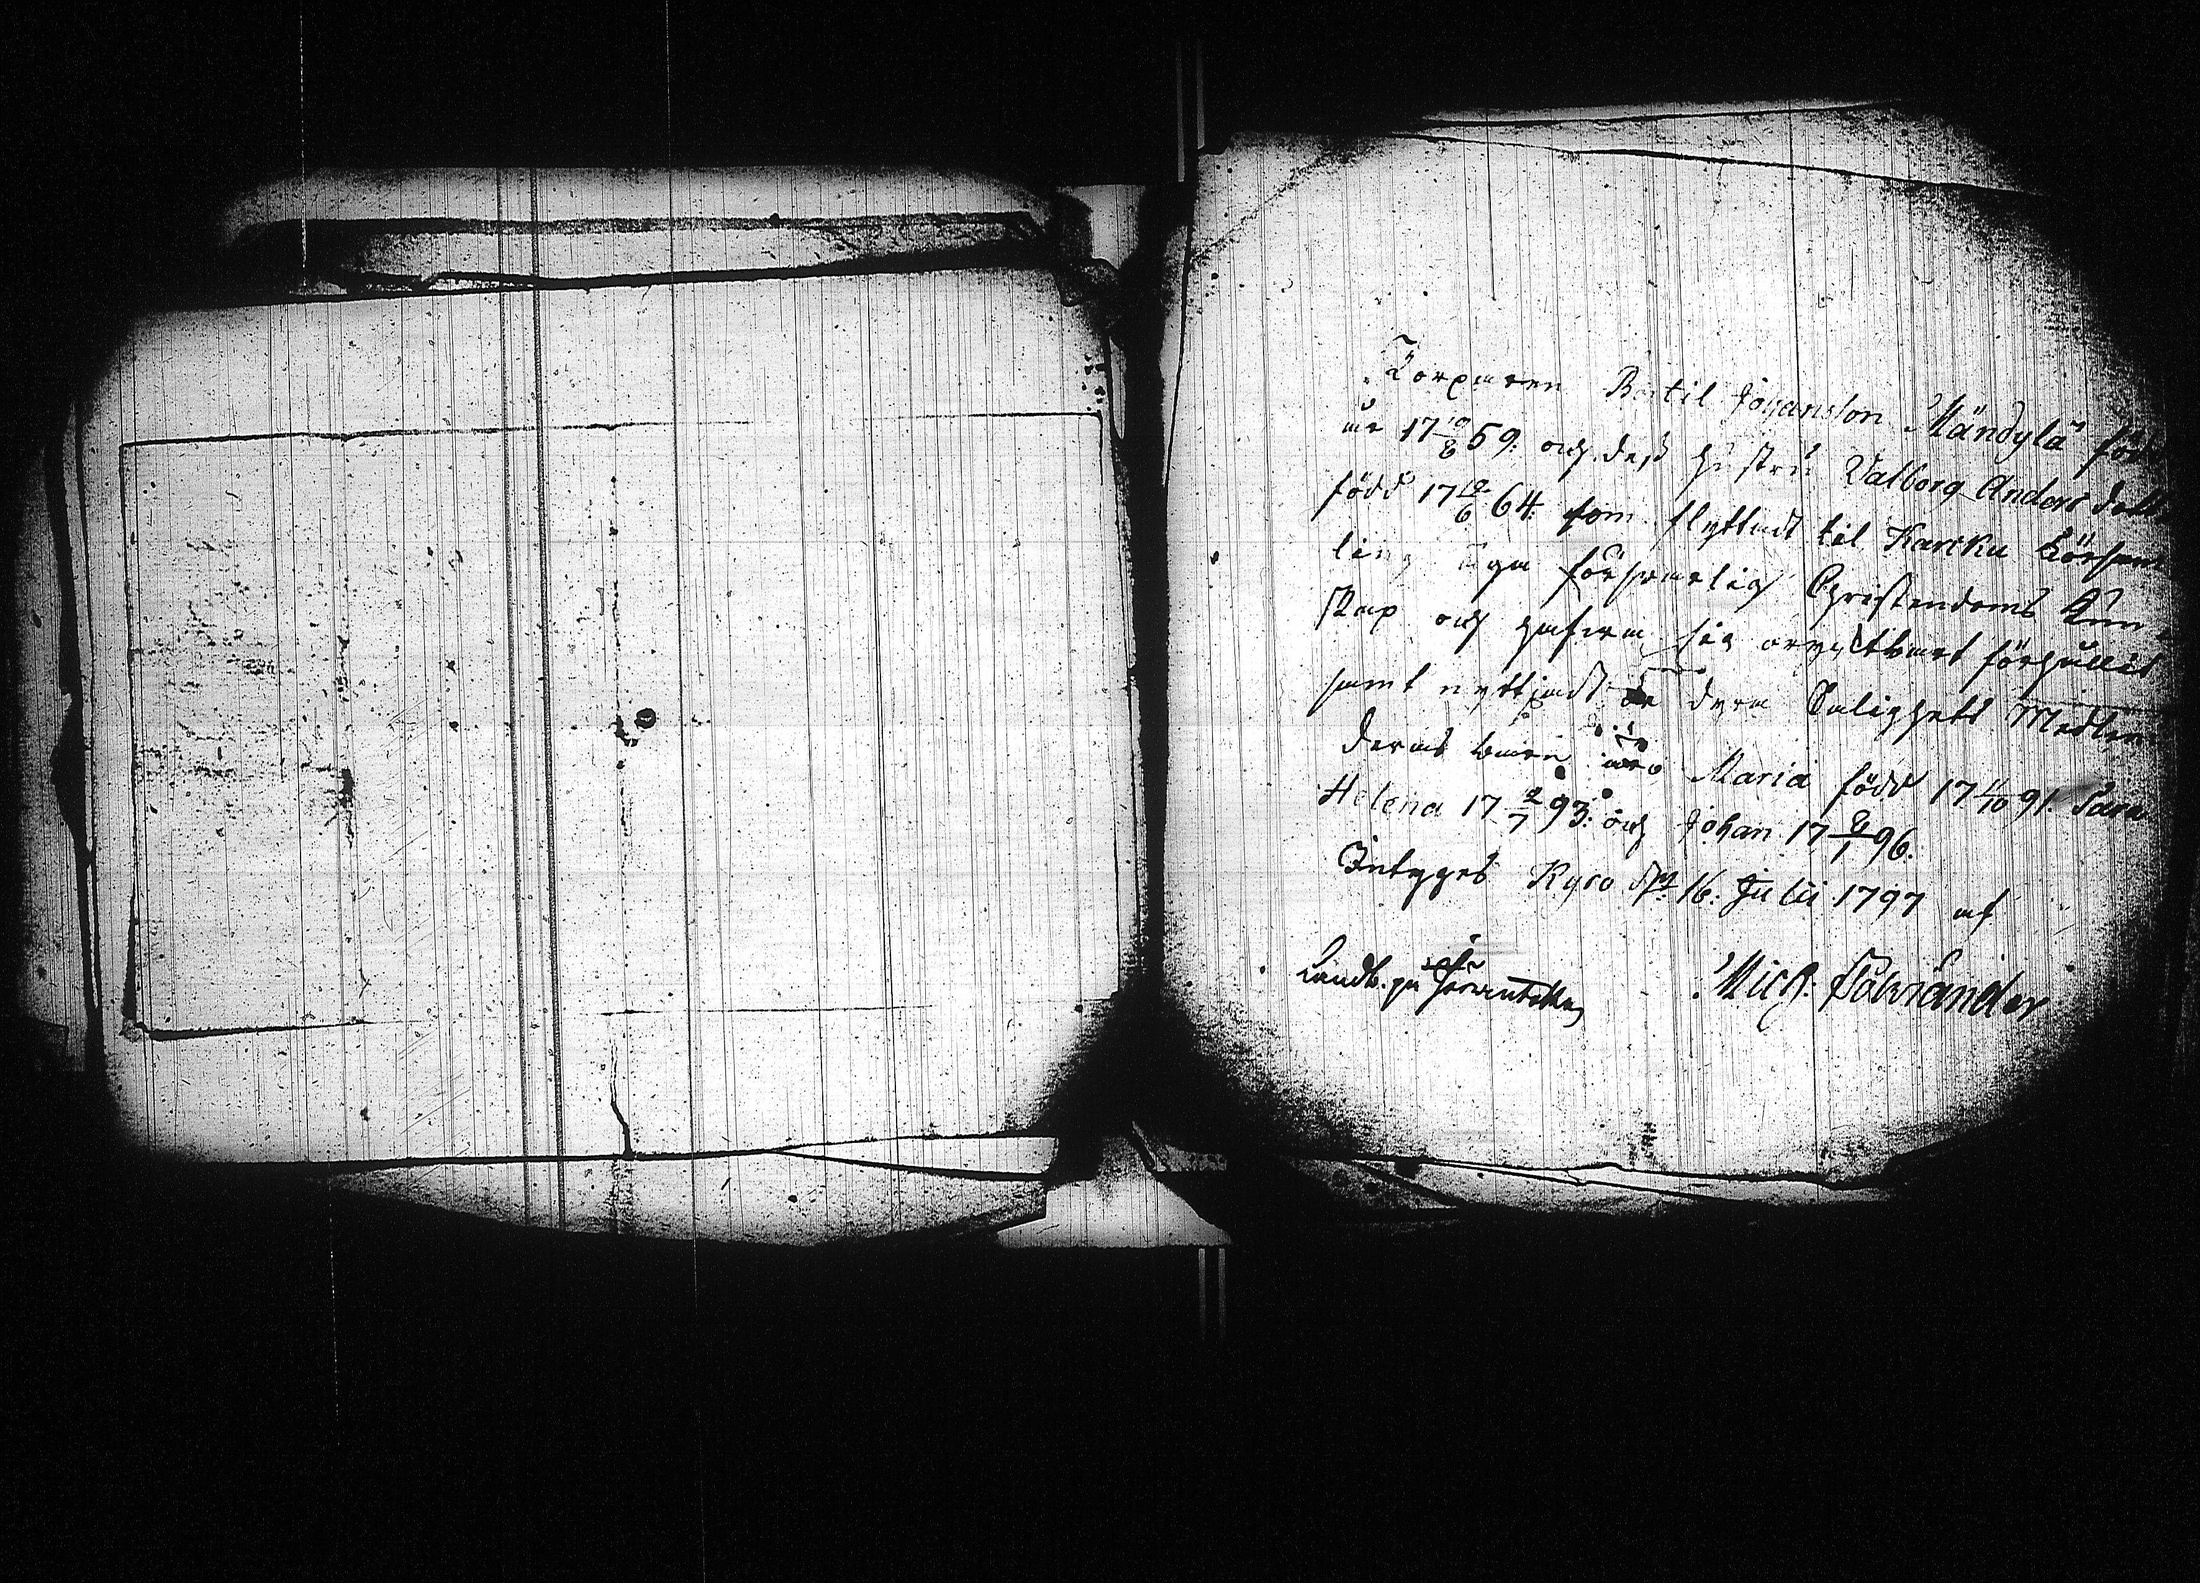 Torparen Bertil Johansson Mändylä född
år 17 19/8 59. och dess hustru Valborg Anders dotter
född 17 12/6 64. som flyttadt til Karcku Församl
ling äga försvarlig Christendoms Kun
skap och hafwa sig oryktbart förhållit
samt nyttjadt dyra Salighets Medlen
deras barn äro Maria född 17 11/10 91. Sara
Helena 17 2/7 93. och Johan 17 8/1 96.
Intyges Kyro d. 16. Julii 1797 af
Mich: Polviander
Landb. på